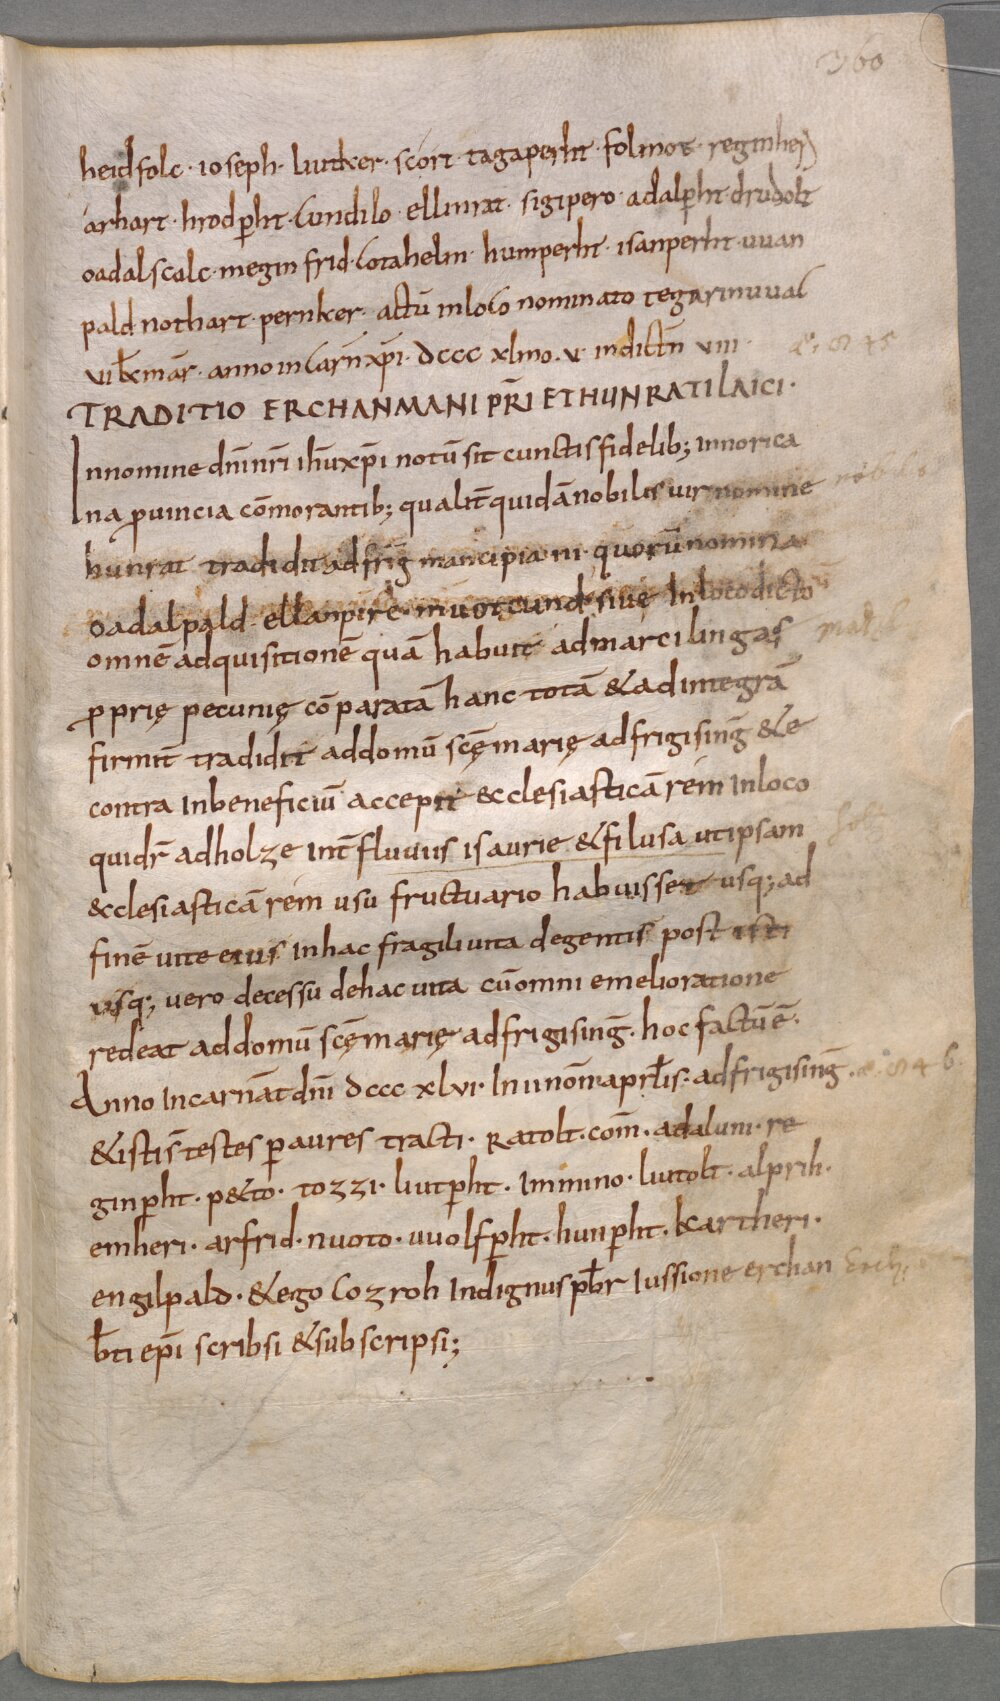 360
heidfolc · ioseph · liutker · scort · tagaperht · folmot · reginheri
arhart · hrodp̄ht · cundilo · ellinrat · sigipero · adalp̄ht · drudolt
oadalscalc · megin frid · cotahelm · humperht · isanperht · uuan
pald nothart · pernker · actū inloco nominato tegarinuual
anno incarn̄ xp̄i · dccc xlmo · v · indictn̄ viii ·
TRADITIO ERCHANMANI PR̄I ETHUNRATI LAICI ·
Innomine dn̄inr̄i ih̄uxp̄i notū sit cunctisfidelib; innorica
na ꝓuincia cōmorantib; qualit̄ quidā nobilis uir nomine
hunrat tradidit adfriḡ mancipia iii · quorū nomina
oadalpald · ellanpirc · inlocodicto
omnē adquisitionē quā habuit admarcilingas
ꝓprię pecunię cōparatā hanc totā &adintegrā
firmit̄ tradidit addomū scę̄ marię adfrigisinḡ &e
contra inbeneficiū accepit &cclesiasticā rem inloco
quidr̄ adholze int̄ fluuiis isaurie &filusa utipsam
&cclesiasticā rem usu fructuario habuisset usq; ad
finē uite eius inhac fragiliuita degentis post isti
usq; uero decessu dehacuita cū omni emelioratione
redeat addomū scę̄ marię adfrigisinḡ · hoc factū ē ·
Anno incarnat̄ dn̄i dccc xlvi · in unōm aprl̄is · adfrigisinḡ ·
&istis testes p̄ aures tracti · Ratolt · com̄ · adaluni · re
ginp̄ht · p&to · tozzi · liutp̄ht · immino · liutolt · alprih ·
emheri · arfrid · nuoto · uuolfp̄ht · hunp̄ht · kartheri ·
engilpald · &ego cozroh indignus pb̄r iussione erchan
b̄ti ep̄i scribsi &subscripsi;